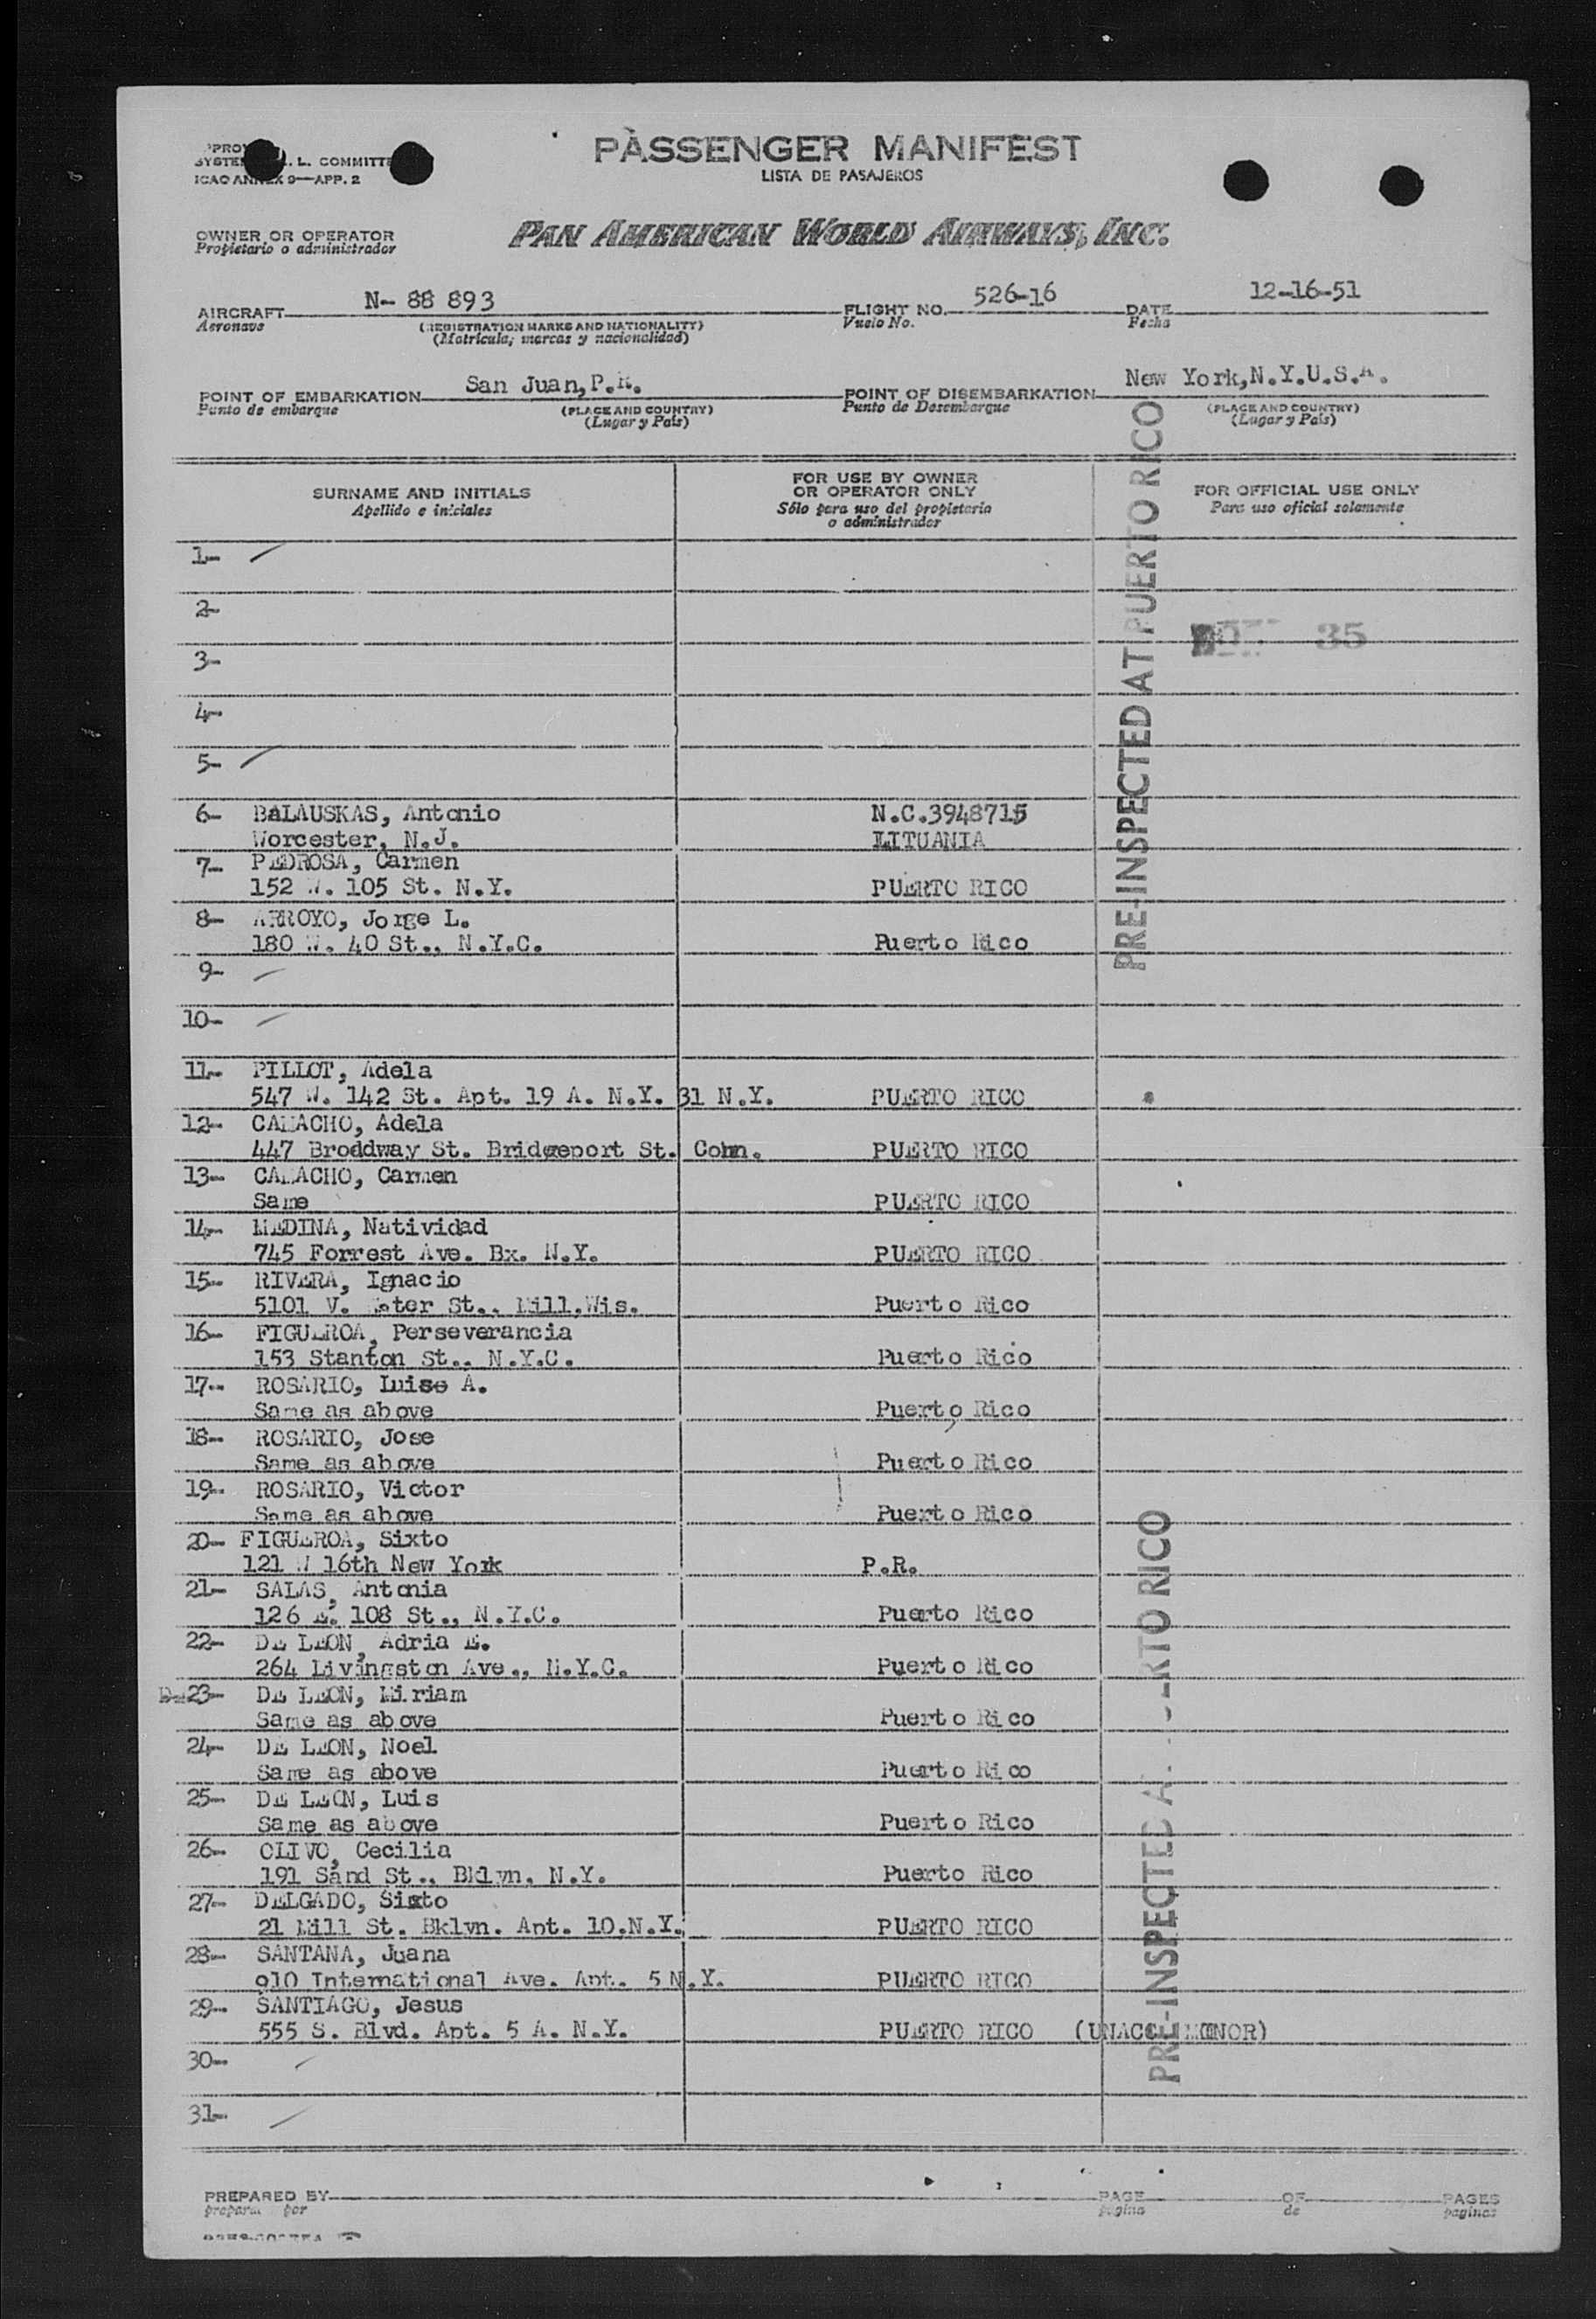 PASSENGER MANIFEST
LISTA DE PASAJEROS
L. COMMITTE
ICAO ANNEX 9—APP. 2
OWNER OR OPERATOR
Propietario o administrador
PAN AMERICAN WORLD AIRWAYS, INC.
AIRCRAFT N- 88 893 FLIGHT NO. 526-16 DATE 12-16-51
Aeronave (REGISTRATION MARKS AND NATIONALITY) Vuelo No. Fecha
(Matricula, marcas y nacionalidad)
POINT OF EMBARKATION San Juan,P.R. POINT OF DISEMBARKATION New York,N.Y.U.S.A.
Punto de embarque (PLACE AND COUNTRY) Punto de Desembarque (PLACE AND COUNTRY)
(Lugar y País) (Lugar y País)
SURNAME AND INITIALS FOR USE BY OWNER OR OPERATOR ONLY FOR OFFICIAL USE ONLY
Apellido e iniciales Sólo para uso del propietario o administrador Para uso oficial solamente
PRE-INSPECTED AT PUERTO RICO
1-
2-
35
3-
4-
5-
6- BALAUSKAS, Antonio N.C.3948715
Worcester, N.J. LITUANIA
7- PEDROSA, Carmen
152 W. 105 St. N.Y. PUERTO RICO
8- ARROYO, Jorge L.
180 W. 40 St., N.Y.C. Puerto Rico
9-
10-
11- PILLOT, Adela
547 W. 142 St. Apt. 19 A. N.Y. 31 N.Y. PUERTO RICO
12- CAMACHO, Adela
447 Broddway St. Bridgeport St. Conn. PUERTO RICO
13- CAMACHO, Carmen
Same PUERTO RICO
14- MEDINA, Natividad
745 Forrest Ave. Bx. N.Y. PUERTO RICO
15- RIVERA, Ignacio
5101 V. St., Mill,Wis. Puerto Rico
16- FIGUEROA, Perseverancia
153 Stanton St., N.Y.C. Puerto Rico
17- ROSARIO, Luiso A.
Same as above Puerto Rico
18- ROSARIO, Jose
Same as above Puerto Rico
19- ROSARIO, Victor
Same as above Puerto Rico
20- FIGUEROA, Sixto
121 W 16th New York P.R.
21- SALAS, Antonia
126 E. 108 St., N.Y.C. Puerto Rico
22- DE LEON, Adria E.
264 Livingston Ave., N.Y.C. Puerto Rico
23- DE LEON, Miriam
Same as above Puerto Rico
24- DE LEON, Noel
Same as above Puerto Rico
25- DE LEON, Luis
Same as above Puerto Rico
26- OLIVO, Cecilia
191 Sand St., Bklyn, N.Y. Puerto Rico
27- DELGADO, Sixto
21 Mill St. Bklyn. Apt. 10.N.Y. PUERTO RICO
28- SANTANA, Juana
910 International Ave. Apt. 5 N.Y. PUERTO RICO
29- SANTIAGO, Jesus
555 S. Blvd. Apt. 5 A. N.Y. PUERTO RICO (UNACC. MINOR)
PRE-INSPECTED AT PUERTO RICO
30-
31-
PREPARED BY PAGE OF PAGES
por página de paginas